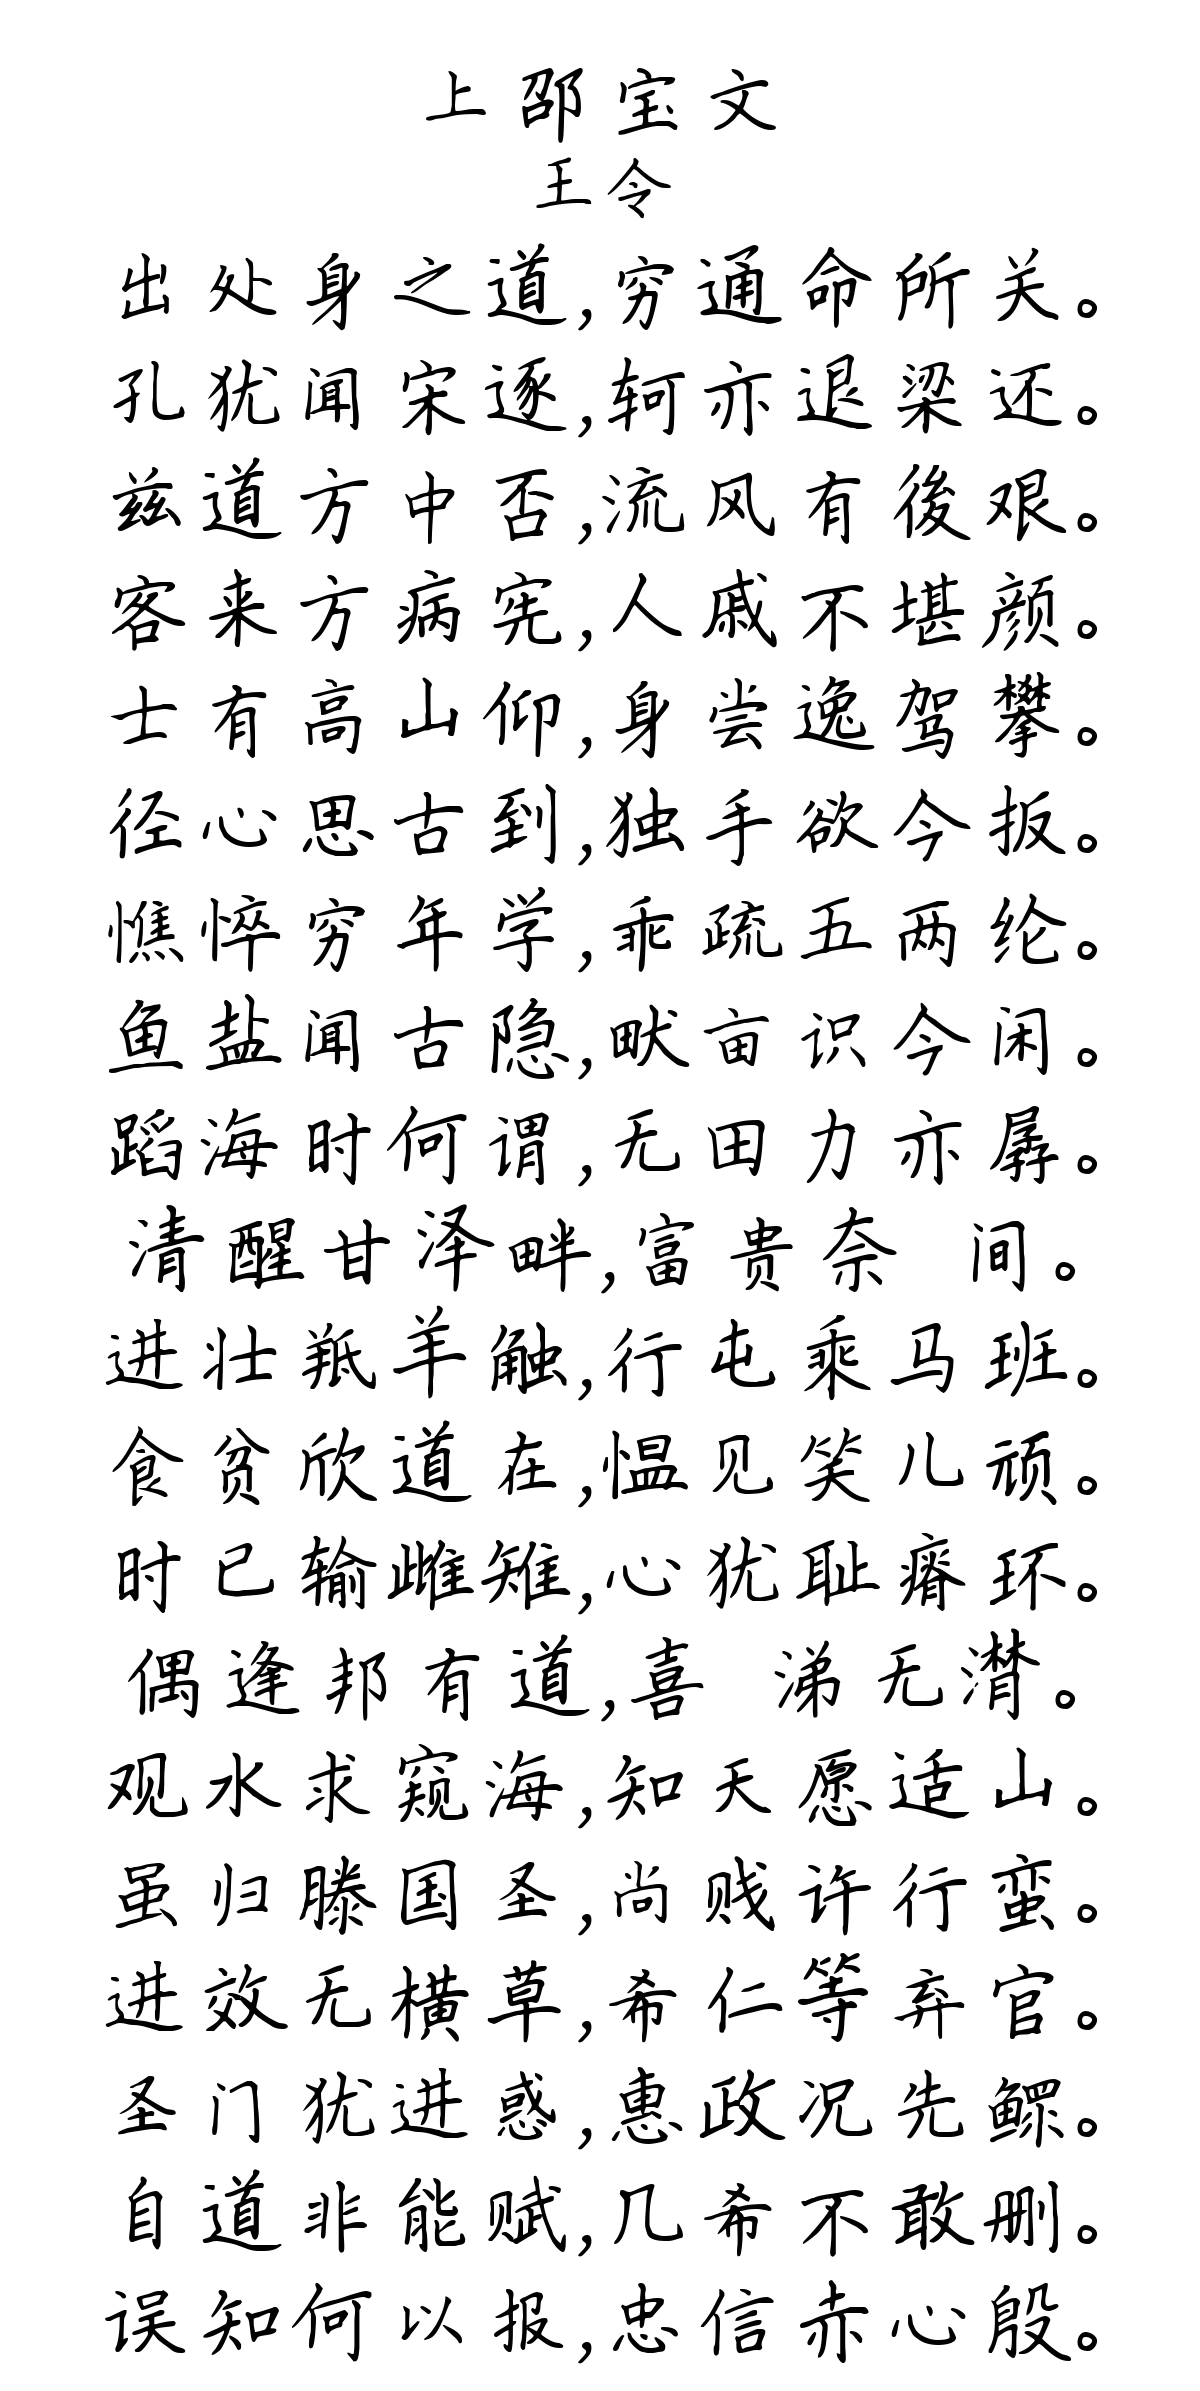 上邵宝文
王令
出处身之道,穷通命所关。
孔犹闻宋逐,轲亦退梁还。
兹道方中否,流风有後艰。
客来方病宪,人戚不堪颜。
士有高山仰,身尝逸驾攀。
径心思古到,独手欲今扳。
憔悴穷年学,乖疏五两纶。
鱼盐闻古隐,畎亩识今闲。
蹈海时何谓,无田力亦孱。
清醒甘泽畔,富贵奈 间。
进壮羝羊触,行屯乘马班。
食贫欣道在,愠见笑儿顽。
时已输雌雉,心犹耻瘠环。
偶逢邦有道,喜 涕无潸。
观水求窥海,知天愿适山。
虽归滕国圣,尚贱许行蛮。
进效无横草,希仁等弃官。
圣门犹进惑,惠政况先鳏。
自道非能赋,几希不敢删。
误知何以报,忠信赤心殷。